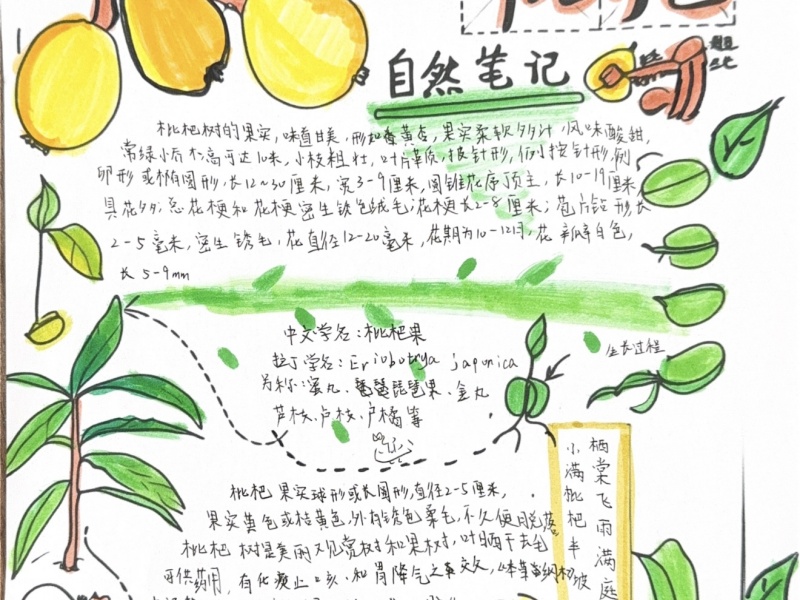 枇杷
自然笔记
枇杷树的果实，味道甘美，形如黄杏，果实柔软多汁，风味酸甜，
常绿小乔木，高可达10米，小枝粗壮，叶片革质，披针形，倒披针形，倒
卵形或椭圆形，长12~30厘米，宽3-9厘米，圆锥花序顶生，长10-19厘米
具花多；总花梗和花梗密生锈色绒毛；花梗长2-8厘米；苞片钻形，长
2-5毫米，密生锈毛，花直径12-20毫米，花期为10-12月，花瓣白色，
长5-9mm
中文学名：枇杷果
拉丁学名：Eriobotrya japonica
别称：蜜丸、琵琶果、金丸
芦枝、卢枝、卢橘等
生长过程
枇杷果实球形或长圆形，直径2-5厘米，
果实黄色或桔黄色，外有锈色柔毛，不久便脱落。
枇杷树是美丽观赏树和果树，叶晒干去毛
可供药用，有化痰止咳、和胃降气之功效，《本草纲
栖棠飞雨满庭
小满枇杷半坡